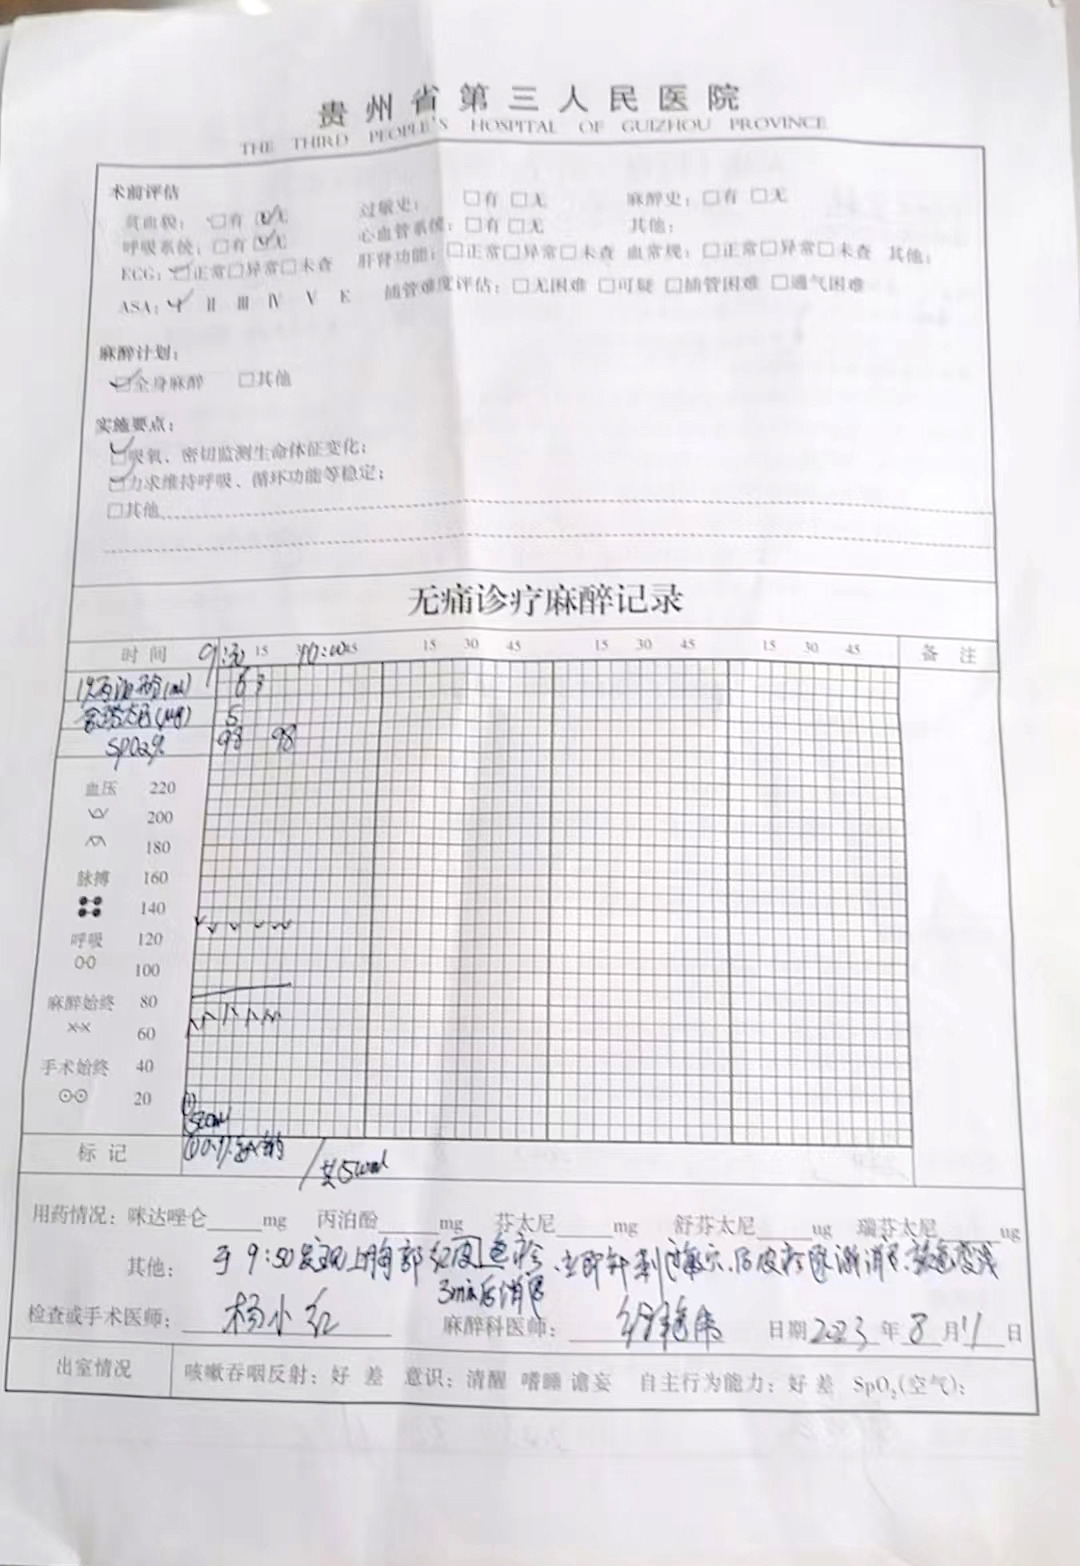 贵州省第三人民医院
THE THIRD PEOPLE'S HOSPITAL OF GUIZHOU PROVINCE
术前评估
贫血貌：□有 □无 过敏史：□有 □无 麻醉史：□有 □无
呼吸系统：□有 □无 心血管系统：□有 □无 其他：
ECG：□正常□异常□未查 肝肾功能：□正常□异常□未查 血常规：□正常□异常□未查 其他：
ASA： Ⅱ Ⅲ Ⅳ Ⅴ E 插管难度评估：□无困难 □可疑 □插管困难 □通气困难
麻醉计划：
□全身麻醉 □其他
实施要点：
□吸氧、密切监测生命体征变化；
□力求维持呼吸、循环功能等稳定；
□其他
无痛诊疗麻醉记录
时 间 9:30 15 10:00 45 15 30 45 15 30 45 15 30 45 备 注
1%丙泊酚(ml) 6 3
舒芬太尼(μg) 5
SPO2% 98 98
血压 220
200
180
脉搏 160
140
呼吸 120
100
麻醉始终 80
×-× 60
手术始终 40
⊙⊙ 20
①
500ml
标 记 ① 0.9% /共500ml
用药情况：咪达唑仑____mg 丙泊酚____mg 芬太尼____mg 舒芬太尼____ug 瑞芬太尼____ug
其他：于9:50发现上胸部 皮疹、立即 后皮疹 渐消退、颜色变浅
3min后消退
检查或手术医师：杨小红 麻醉科医师： 日期2023年8月11日
出室情况 咳嗽吞咽反射：好 差 意识：清醒 嗜睡 谵妄 自主行为能力：好 差 SpO₂(空气)：